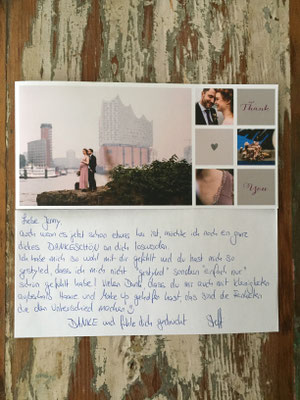 Thank
You
Liebe Jenny,
auch wenn es jetzt schon etwas her ist, möchte ich noch ein ganz
dickes DANKESCHÖN an dich loswerden.
Ich habe mich so wohl mit dir gefühlt und du hast mich so
gestyled, dass ich mich nicht "gestyled" sondern "einfach nur"
schön gefühlt habe! Vielen Dank, dass du mir auch mit Kleinigkeiten
außerhalb Haare und Make Up geholfen hast, das sind die
die den Unterschied machen
DANKE und fühle dich gedrückt Steffi